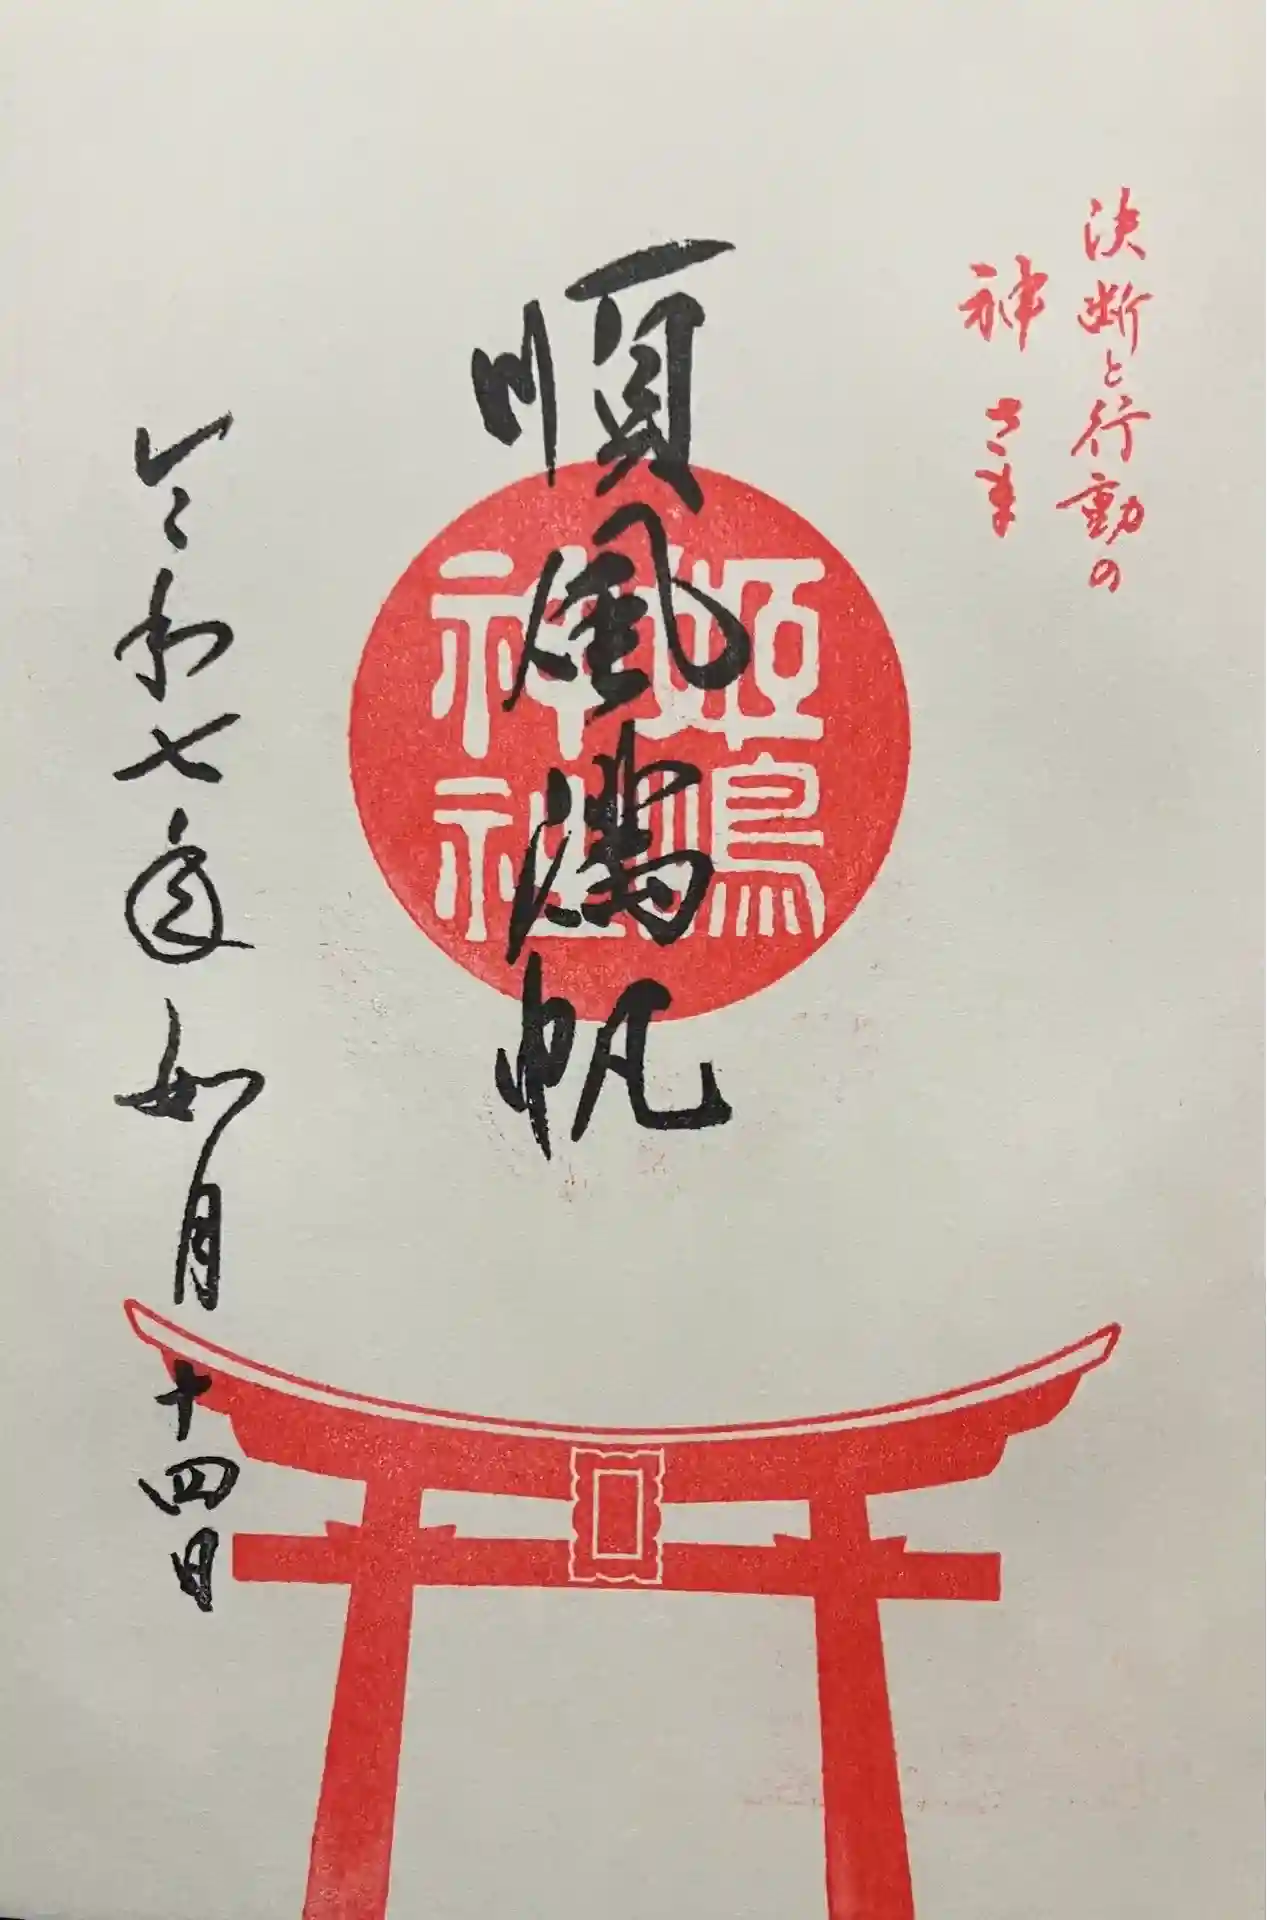 決断と行動の
神さま
順風満帆
姫嶋
神社
令和七年如月十四日